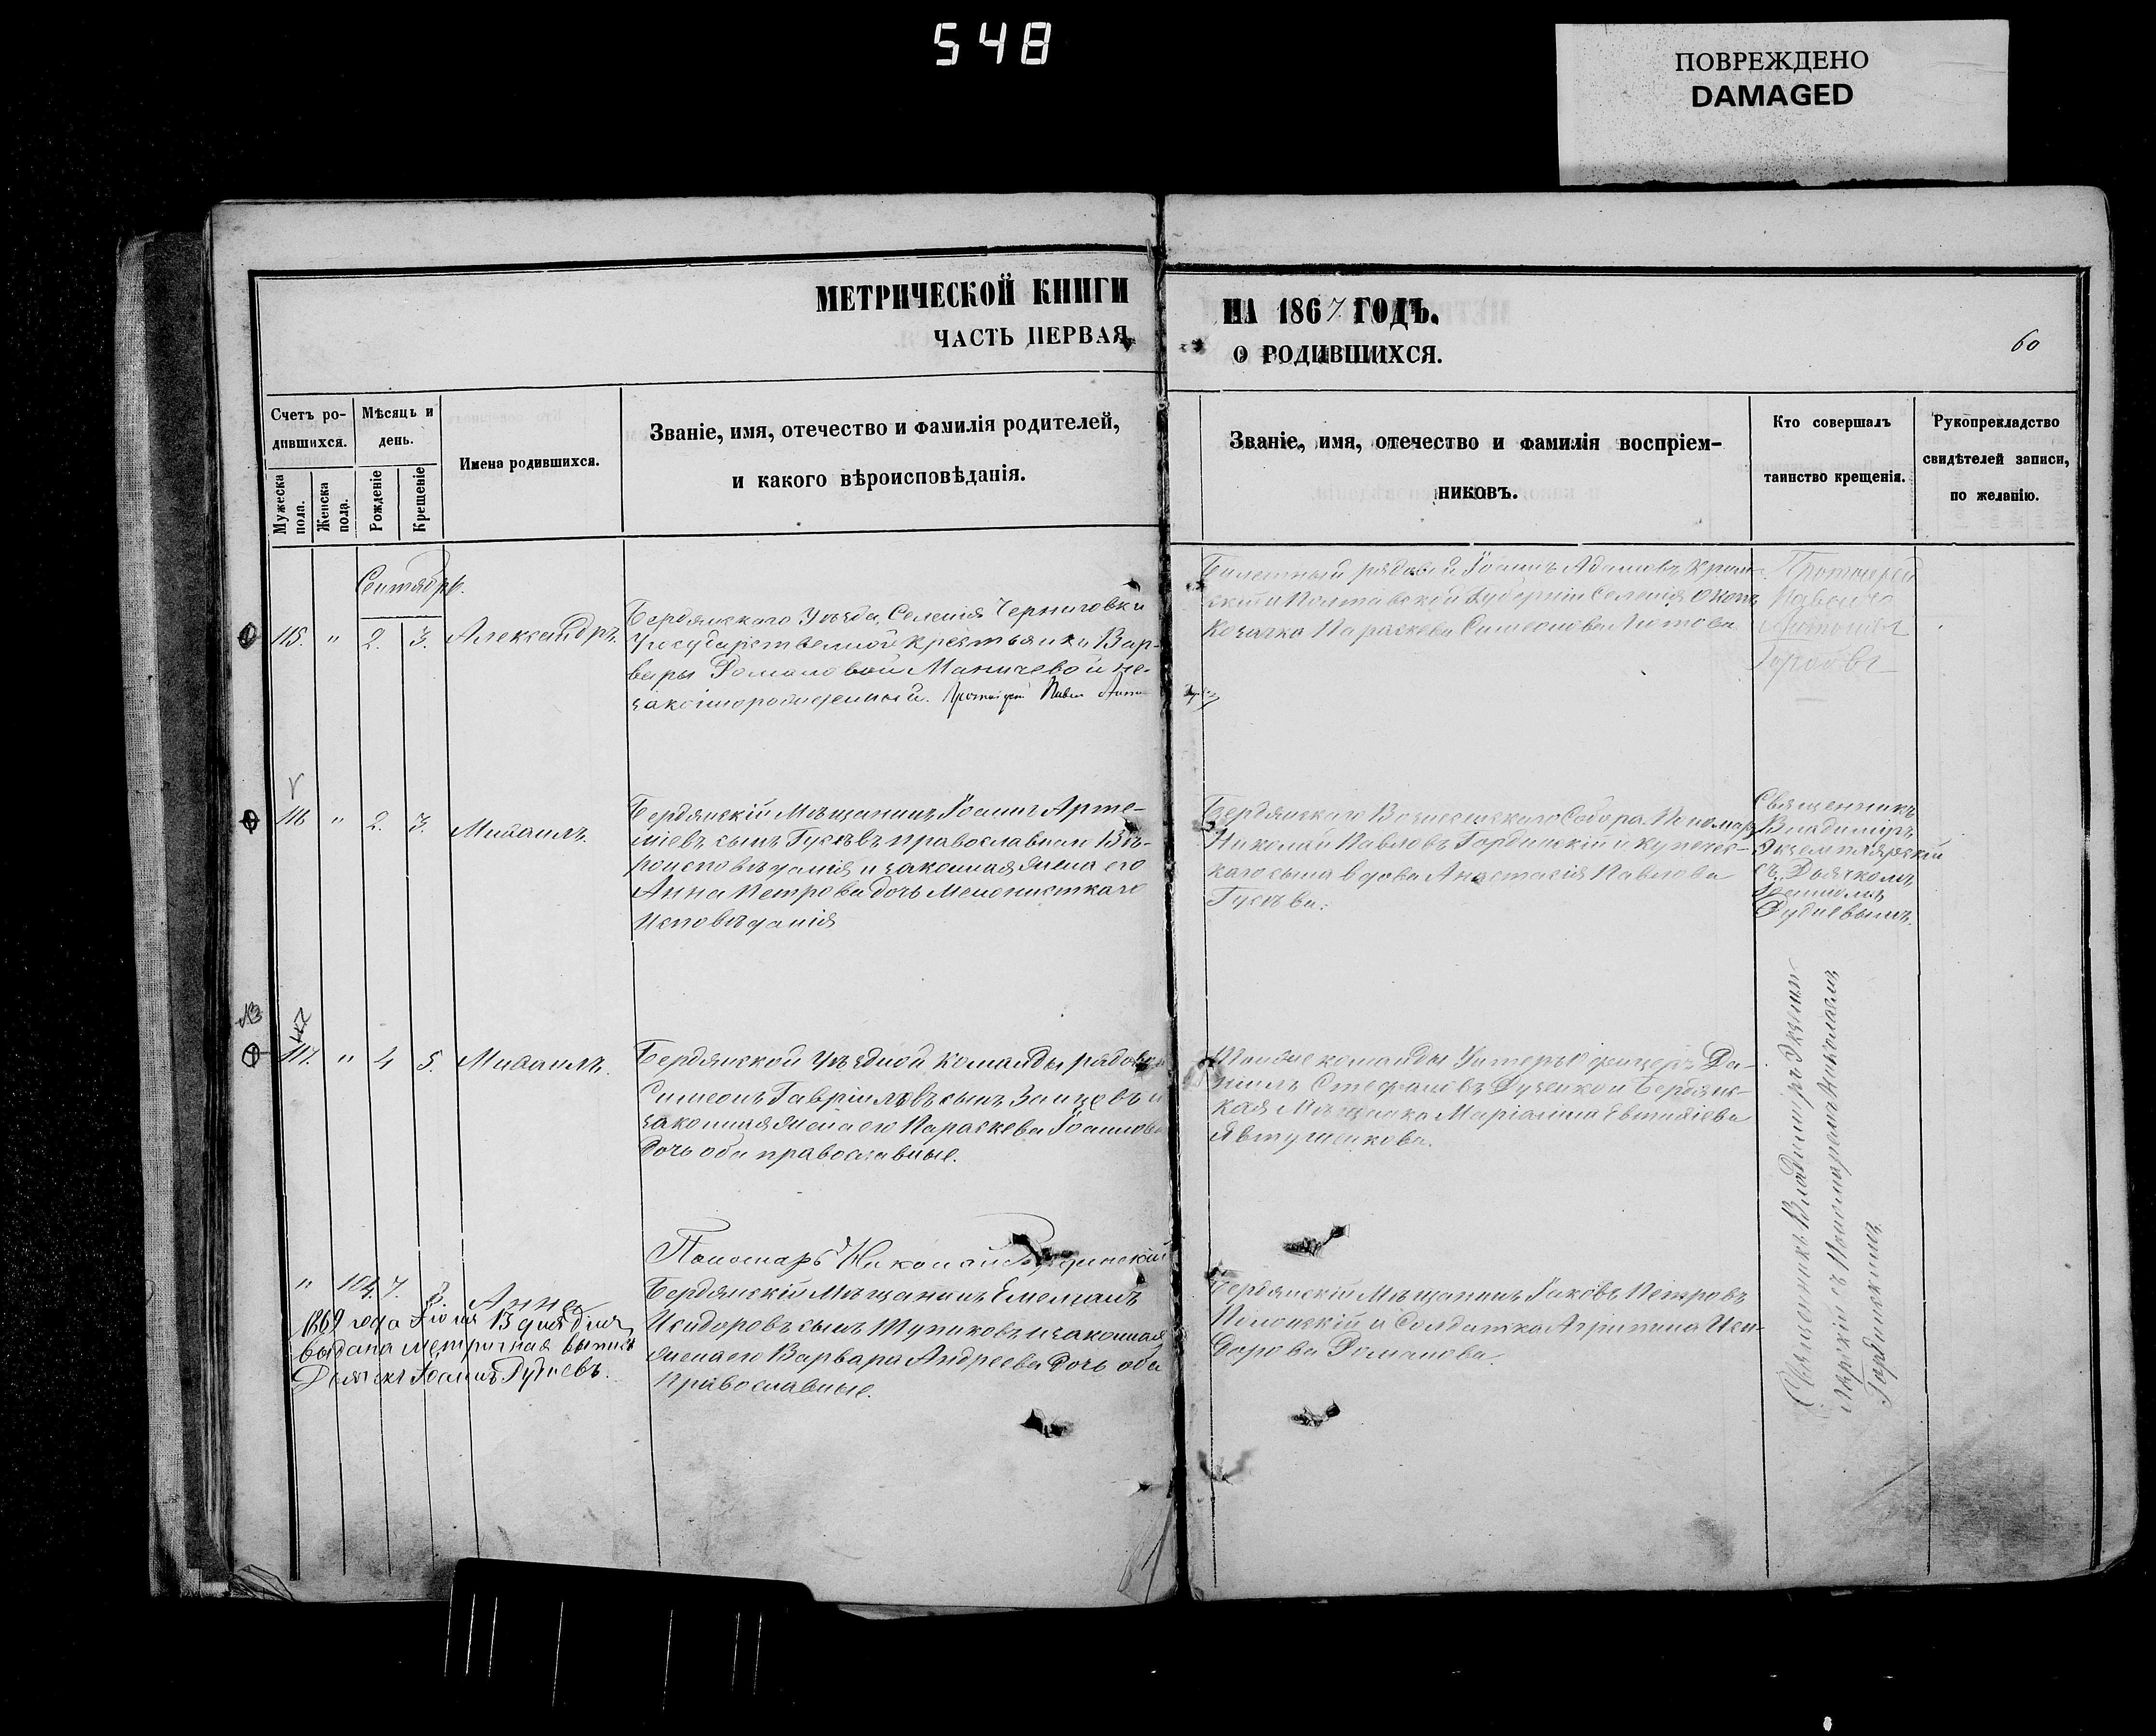 548
ПОВРЕЖДЕНО
DAMAGED
МЕТРИЧЕСКОЙ КНИГИ
НА 1867 ГОДЪ.
ЧАСТЬ ПЕРВАЯ,
О РОДИВШИХСЯ.
60
Счетъ ро-
дившихся.
Мужеска
пола.
Женска
пола.
Мѣсяцъ и
день.
Рожденіе
Крещеніе
Имена родившихся.
Званіе, имя, отечество и фамилія родителей,
и какого вѣроисповѣданія.
Званіе, имя, отечество и фамилія воспріем-
никовъ.
Кто совершалъ
таинство крещенія.
Рукоприкладство
свидѣтелей записи,
по желанію.
Сентябрь.
115. " 2. 3. Александръ.
Бердянскаго Уѣзда, Селенія Черниговки
Государственной крестьянки Вар-
вары Романовой Маничевой не-
законнорожденный. Протоіерей Павелъ
Билетный рядовой Іоаннъ Адамовъ
Полтавской Губерніи Селенія
Козачка Параскева Симеонова
Протоіерей
Павелъ
Антоновъ
116 " 2. 3. Михаилъ.
Бердянскій Мѣщанинъ Іоаннъ Арте-
міевъ сынъ Гусевъ православнаго Вѣ-
роисповѣданія и законная жена его
Анна Петрова дочь Менонисткаго
Исповѣданія
Бердянскаго Вознесенскаго Собора Пономарь
Николай Павловъ Гординскій и купечес-
каго сына вдова Анастасія Павлова
Гусева.
Священникъ
Владиміръ
Экземплярскій
съ Дьячкомъ
Іоанномъ
Рудневымъ.
117. " 4 5. Михаилъ.
Бердянской Уѣздной команды рядовой
Симеонъ Гавріиловъ сынъ Заицевъ и
законная жена его Параскева Іоаннова
дочь оба православные.
Тойже команды Унтеръ Офицеръ Да-
ніилъ Стефановъ Луценко и Бердянс-
кая Мѣщанка Маріанна Евтихіева
Явтушенкова.
Священникъ Владиміръ Экземп-
лярскій съ Пономаремъ Николаемъ
Гординскимъ.
Пономарь Николай Гординскій
" 104. 7. 8. Анна
1869 года Іюня 13 дня
выдана метричная выпись
Дьячекъ Іоаннъ Рудневъ.
Бердянскій Мѣщанинъ Емеліанъ
Исидоровъ сынъ Тупиковъ и законная
жена его Варвара Андреева дочь оба
православные.
Бердянскій Мѣщанинъ Іаковъ Петровъ
Полонскій и Солдатка Агрипина Иси-
дорова Романова.